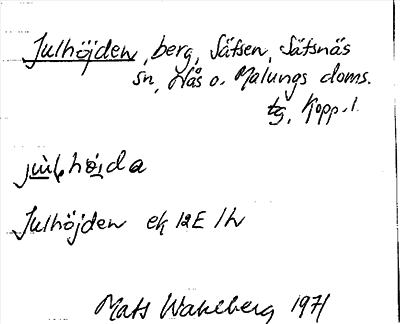 Julhöjden, berg, Säfsen, Säfsnäs
sn, Nås o. Malungs doms.
tg, Kopp. l.
Julhöjden ek 12E 1h
Mats Wahlberg 1971